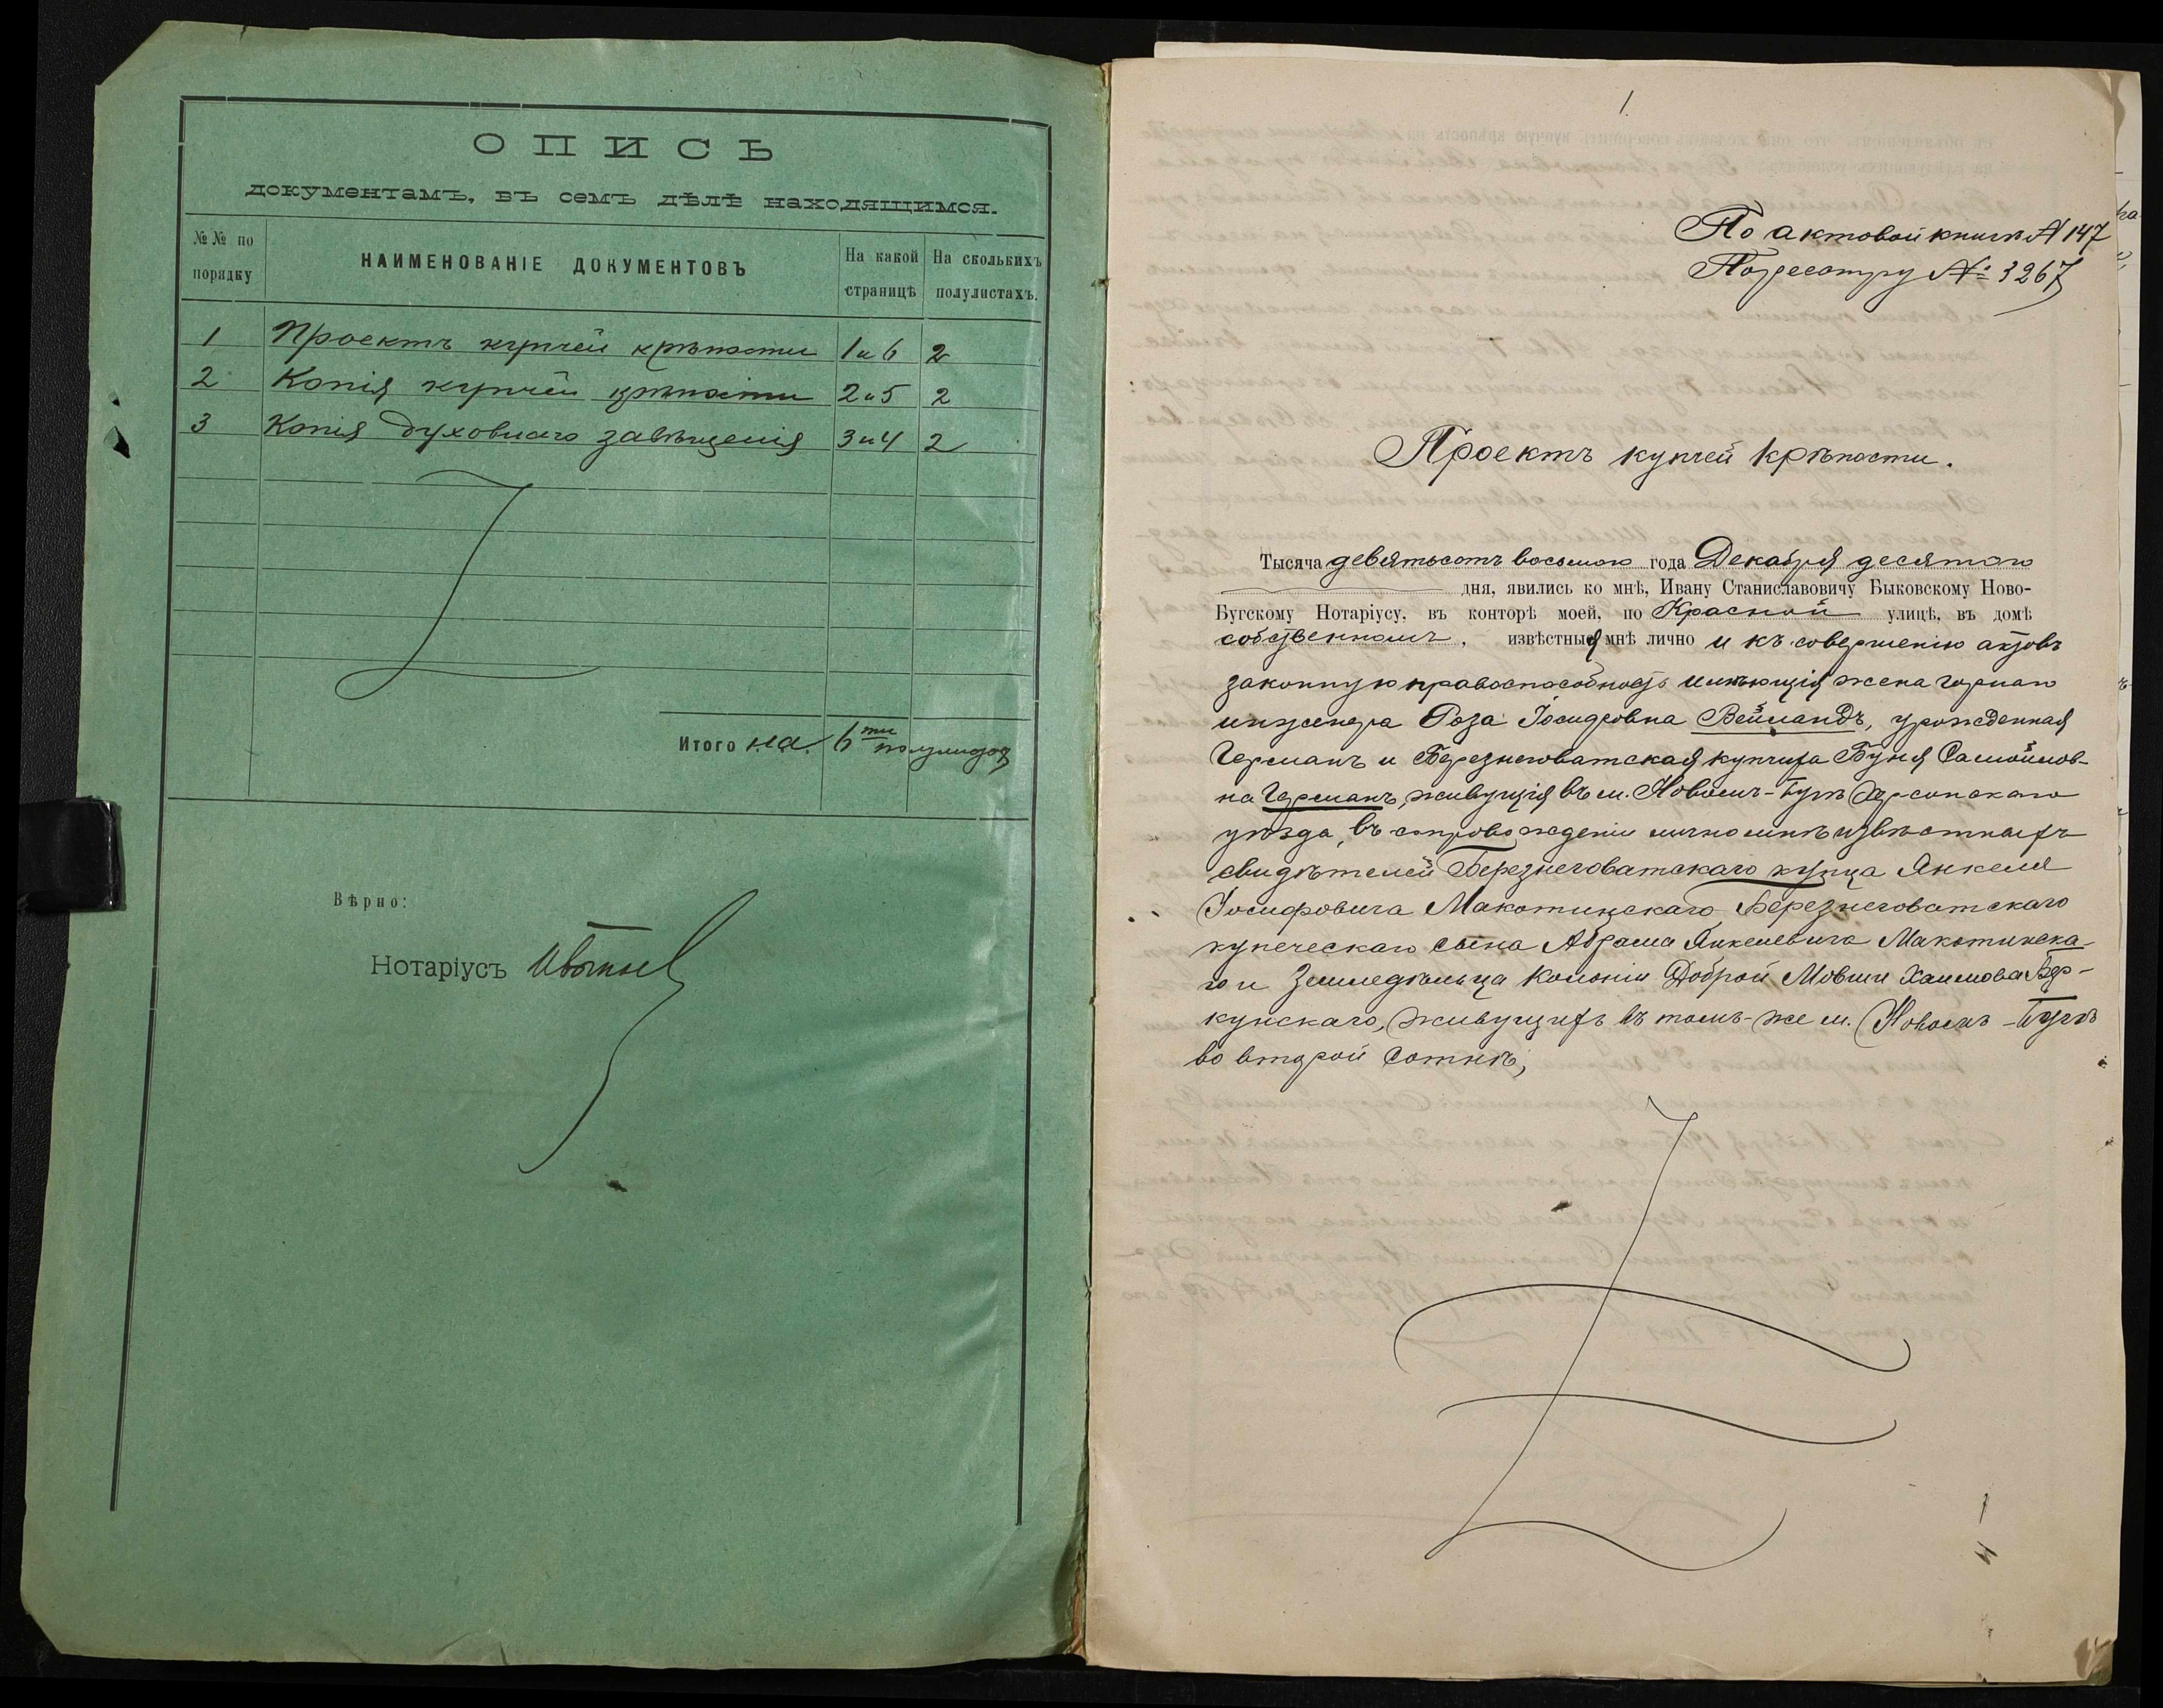 ОПИСЬ
документамъ, въ семъ дѣлѣ находящимся.
№№ по порядку
НАИМЕНОВАНІЕ ДОКУМЕНТОВЪ
На какой страницѣ
На сколькихъ полулистахъ.
1 Проектъ купчей крѣпости 1 и 6 2
2 Копія купчей крѣпости 2 и 5 2
3 Копія духовнаго завѣщенія 3 и 4 2
Итого на 6ти полулистахъ
Вѣрно:
Нотаріусъ
1.
По актовой книгѣ № 147
По реестру № 3267
Проектъ купчей крѣпости.
Тысяча девятьсотъ восьмого года Декабря десятого
дня, явились ко мнѣ, Ивану Станиславовичу Быковскому Ново-
Бугскому Нотаріусу, въ конторѣ моей, по Красной улицѣ, въ домѣ
собственномъ, извѣстныя мнѣ лично и къ совершенію актовъ
законную правоспособность имѣющія жена горнаго
инженера Роза Іосифовна Вейландъ, урожденная
Германъ и Березнеговатская купчиха Буня Самойлов-
на Германъ, живущія въ м. Новомъ-Бугѣ Херсонскаго
уѣзда, въ сопровожденіи лично мнѣ извѣстныхъ
свидѣтелей Березнеговатскаго купца Янкеля
Іосифовича Макотинскаго, Березнеговатскаго
купеческаго сына Абрама Янкелевича Макотинска-
го и Земледѣльца колоніи Доброй Мовши Хаимова Бер-
кунскаго, живущихъ въ томъ-же м. Новомъ-Бугѣ
во второй сотнѣ;